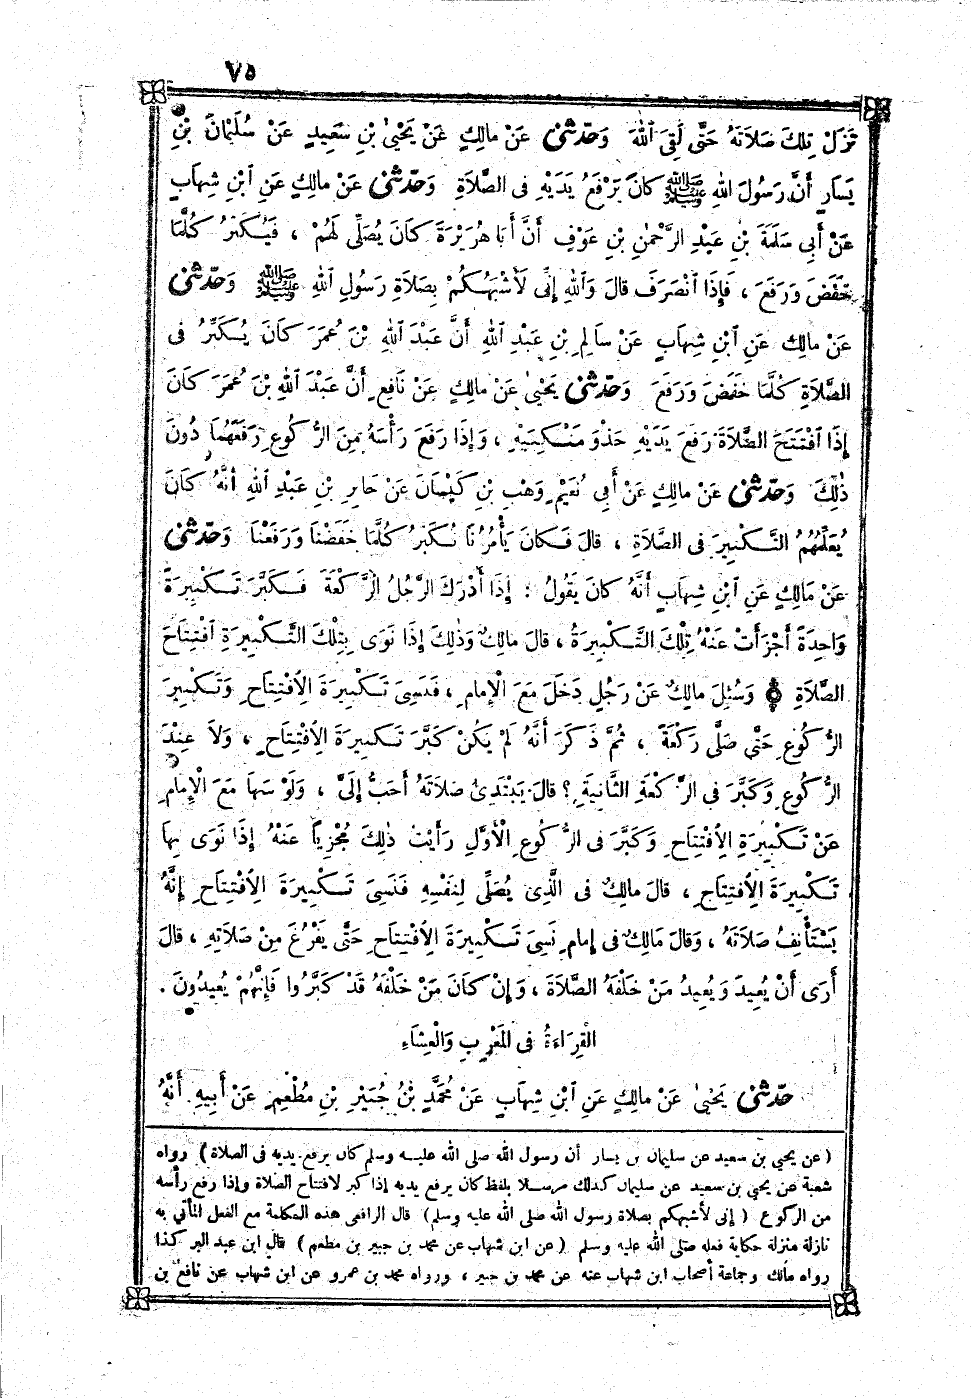 ٧٥
تَزَلْ تِلْكَ صَلَاتَهُ حَتَّى لَقِيَ ٱللهَ وَحَدَّثَنِي عَنْ مالِكٍ عَنْ يَحْيَىٰ بْنِ سَعِيدٍ عَنْ سُلَيْمَانَ بْنِ
يَسَارٍ أَنَّ رَسُولَ اللهِ ﷺ كانَ يَرْفَعُ يَدَيْهِ فِى الصَّلَاةِ وَحَدَّثَنِي عَنْ مالِكٍ عَنِ ٱبْنِ شِهَابٍ
عَنْ أَبِى سَلَمَةَ بْنِ عَبْدِ الرَّحْمٰنِ بْنِ عَوْفٍ أَنَّ أَبَا هُرَيْرَةَ كَانَ يُصَلِّى لَهُمْ ، فَيُكَبِّرُ كُلَّمَا
خَفَضَ وَرَفَعَ ، فَإِذَا ٱنْصَرَفَ قالَ وَٱللهِ إِنِّى لَأَشْبَهُكُمْ بِصَلَاةِ رَسُولِ اللهِ ﷺ وَحَدَّثَنِي
عَنْ مالِكٍ عَنِ ٱبْنِ شِهَابٍ عَنْ سَالِمِ بْنِ عَبْدِ ٱللهِ أَنَّ عَبْدَ ٱللهِ بْنَ عُمَرَ كَانَ يُكَبِّرُ فى
الصَّلَاةِ كُلَّمَا خَفَضَ وَرَفَعَ وَحَدَّثَنِي يَحْيَىٰ عَنْ مالِكٍ عَنْ نَافِعٍ أَنَّ عَبْدَ اللهِ بْنَ عُمَرَ كَانَ
إِذَا ٱفْتَتَحَ الصَّلَاةَ رَفَعَ يَدَيْهِ حَذْوَ مَنْكِبَيْهِ ، وَإِذَا رَفَعَ رَأْسَهُ مِنَ الرُّكُوعِ رَفَعَهُمَا دُونَ
ذٰلِكَ وَحَدَّثَنِي عَنْ مالِكٍ عَنْ أَبِى نُعَيْمٍ وَهْبِ بْنِ كَيْسَانَ عَنْ جابِرِ بْنِ عَبْدِ اللهِ أَنَّهُ كَانَ
يُعَلِّمُهُمُ التَّكْبِيرَ فى الصَّلَاةِ ، قالَ فَكانَ يَأْمُرُنَا نُكَبِّرُ كُلَّمَا خَفَضْنَا وَرَفَعْنَا وَحَدَّثَنِي
عَنْ مَالِكٍ عَنِ ٱبْنِ شِهَابٍ أَنَّهُ كانَ يَقُولُ : إِذَا أَدْرَكَ الرَّجُلُ الرَّكْعَةَ فَكَبَّرَ تَكْبِيرَةً
وَاحِدَةً أَجْزَأَتْ عَنْهُ تِلْكَ التَّكْبِيرَةُ ، قالَ مالِكٌ وَذٰلِكَ إِذَا نَوَى بِتِلْكَ التَّكْبِيرَةِ ٱفْتِتَاحَ
الصَّلَاةِ ۞ وَسُئِلَ مالِكٌ عَنْ رَجُلٍ دَخَلَ مَعَ الْإِمامِ ، فَنَسِىَ تَكْبِيرَةَ الِافْتِتَاحِ وَتَكْبِيرَ
الرُّكُوعِ حَتَّى صَلَّى رَكْعَةً ، ثُمَّ ذَكَرَ أَنَّهُ لَمْ يَكُنْ كَبَّرَ تَكْبِيرَةَ الِافْتِتَاحِ ، وَلَا عِنْدَ
الرُّكُوعِ وَكَبَّرَ فى الرَّكْعَةِ الثَّانِيَةِ ؟ قالَ يَبْتَدِئُ صَلَاتَهُ أَحَبُّ إِلَىَّ ، وَلَوْ سَهَا مَعَ الْإِمامِ
عَنْ تَكْبِيرَةِ الِافْتِتَاحِ وَكَبَّرَ فى الرُّكُوعِ الْأَوَّلِ رَأَيْتُ ذٰلِكَ مُجْزِيًا عَنْهُ إِذَا نَوَى بِهَا
تَكْبِيرَةَ الِافْتِتَاحِ ، قالَ مالِكٌ فى الَّذِى يُصَلِّى لِنَفْسِهِ فَنَسِىَ تَكْبِيرَةَ الِافْتِتَاحِ إِنَّهُ
يَسْتَأْنِفُ صَلَاتَهُ ، وَقالَ مَالِكٌ فى إِمامٍ نَسِىَ تَكْبِيرَةَ الِافْتِتَاحِ حَتَّى يَفْرُغَ مِنْ صَلَاتِهِ ، قالَ
أَرَى أَنْ يُعِيدَ وَيُعِيدُ مَنْ خَلْفَهُ الصَّلَاةَ ، وَإِنْ كَانَ مَنْ خَلْفَهُ قَدْ كَبَّرُوا فَإِنَّهُمْ يُعِيدُونَ .
القِرَاءَةُ فى المَغْرِبِ وَالْعِشَاءِ
حَدَّثَنِي يَحْيَىٰ عَنْ مالِكٍ عَنِ ٱبْنِ شِهَابٍ عَنْ مُحَمَّدِ بْنِ جُبَيْرِ بْنِ مُطْعِمٍ عَنْ أَبِيهِ أَنَّهُ
( عن يحيى بن سعيد عن سليمان بن يسار أن رسول الله صلى الله عليه وسلم كان يرفع يديه فى الصلاة ) رواه
شعبة عن يحيى بن سعيد عن سليمان كذلك مرسلا بلفظ كان يرفع يديه إذا كبر لافتتاح الصلاة وإذا رفع رأسه
من الركوع ( إنى لأشبهكم بصلاة رسول الله صلى الله عليه وسلم ) قال الرافعى هذه الكلمة مع الفعل المأتى به
نازلة منزلة حكاية فعله صلى الله عليه وسلم ( عن ابن شهاب عن محمد بن جبير بن مطعم ) قال ابن عبد البر كذا
رواه مالك وجماعة أصحاب ابن شهاب عنه عن محمد بن جبير ، ورواه محمد بن عمرو عن ابن شهاب عن نافع بن